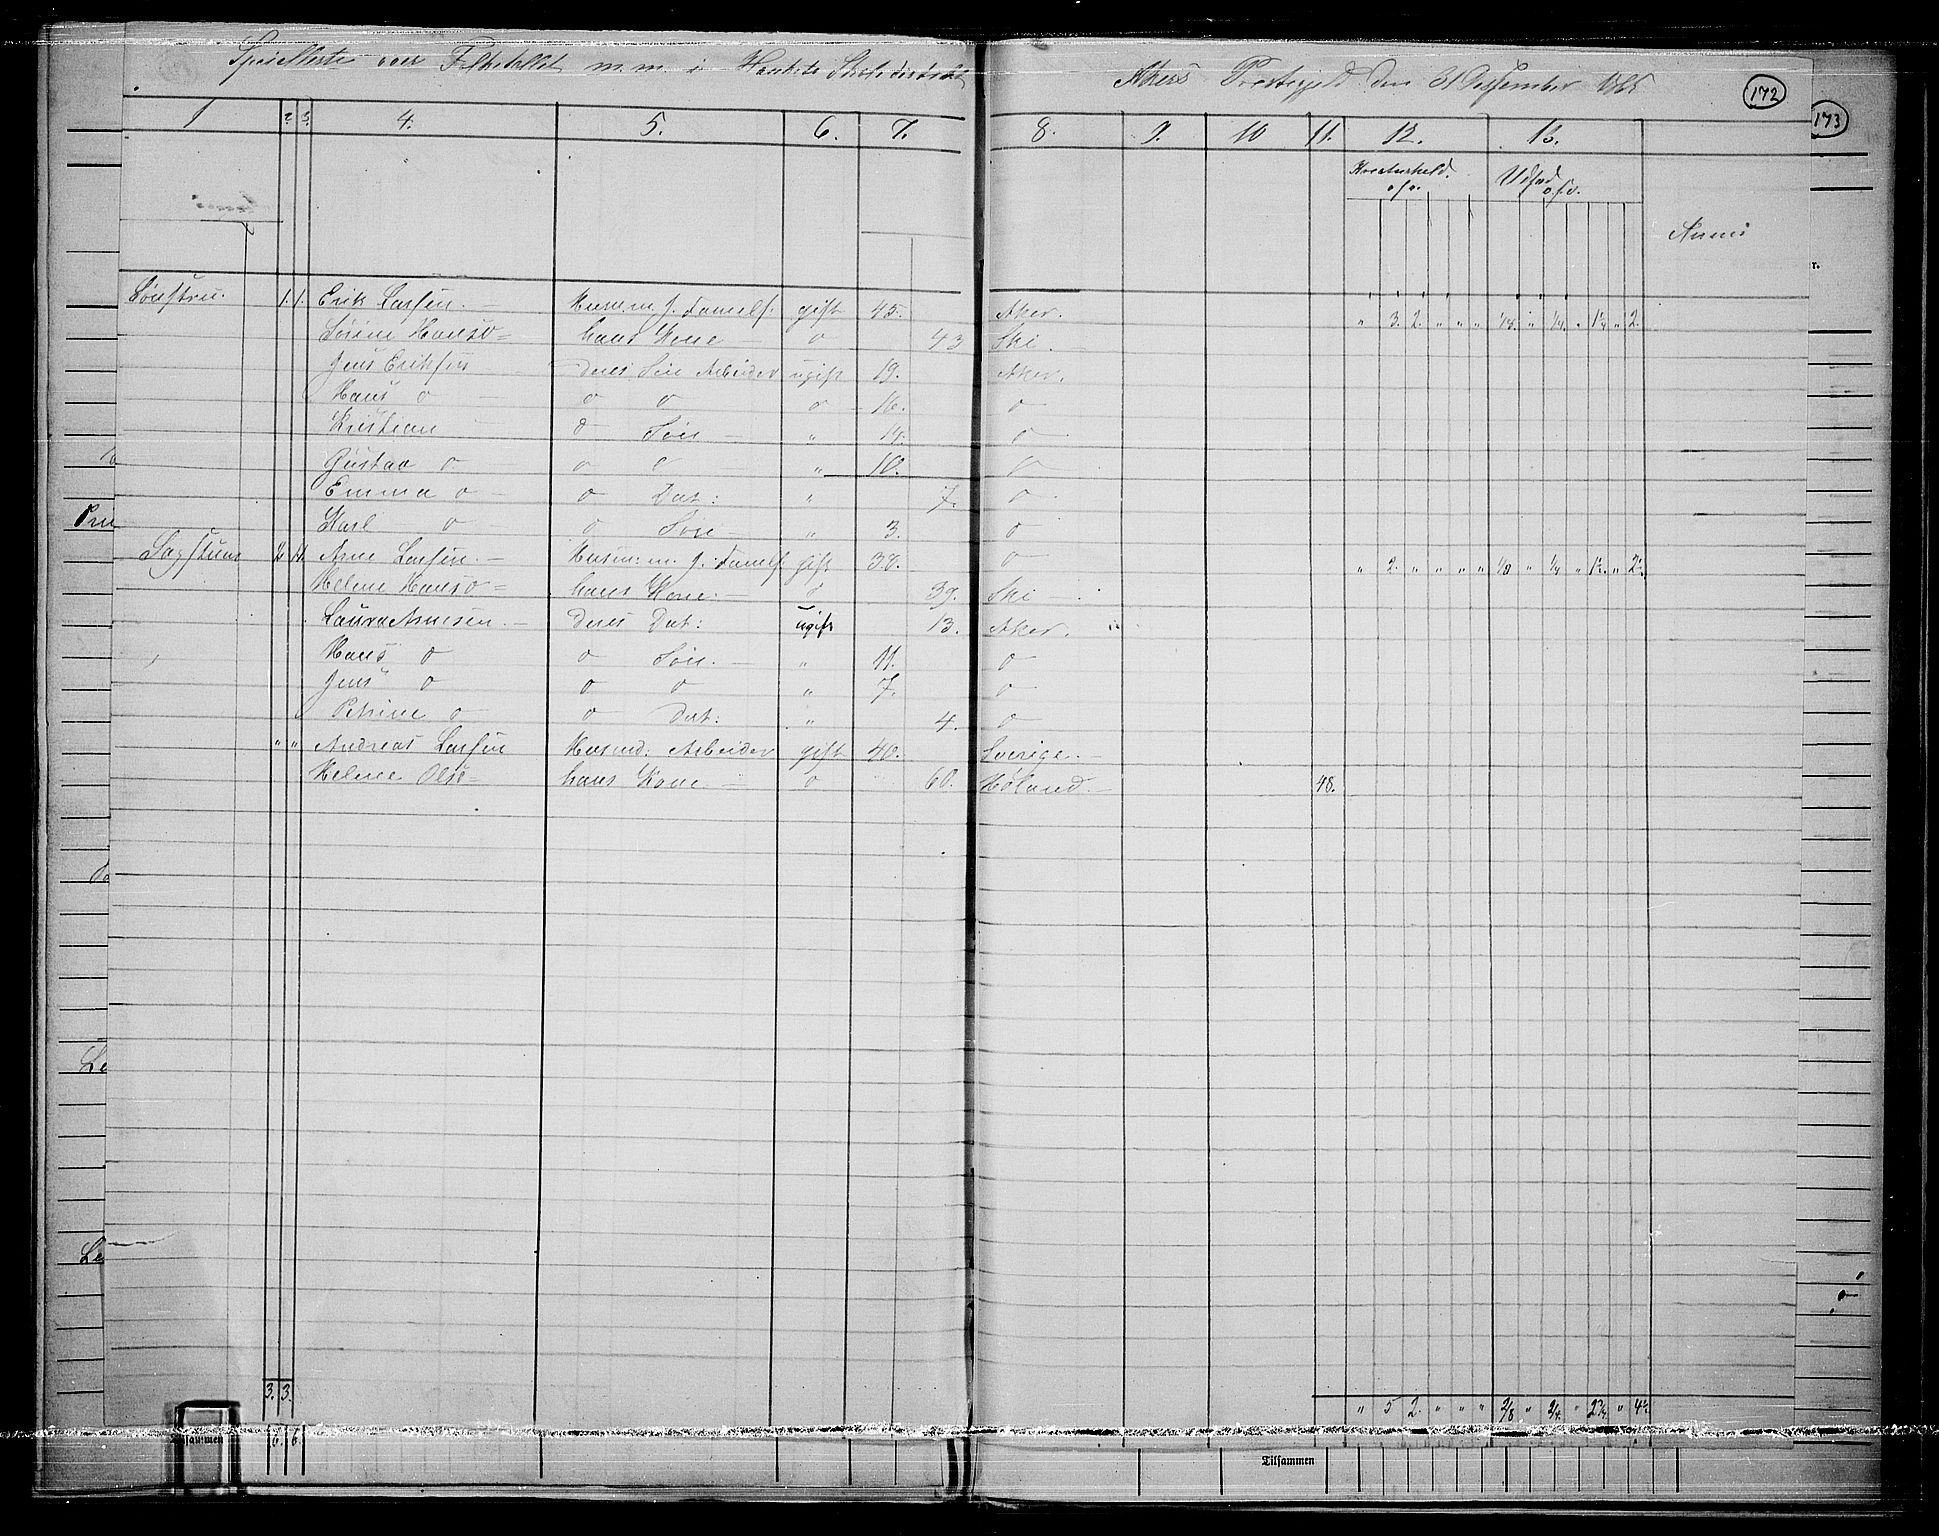 Specilliste over Folketallet m.m. i Skoledistrikt Akers Præstegjeld den 31 December 1865
172
173
1 2. 3. 4. 5. 6. 7. 8. 9. 10 11. 12. 13.
Kreaturhold. o.s.v. Udsæd o.s.v.
1. 1. Erik Larsen. Husm. m. J. gift 45. Aker. " 3. 2. " " " 1/8. " 1/4. " 1 1/4 " 2.
Hanso= hans Kone o 43 Ski.
Jens Eriksen Deres Søn Arbeider ugift 19. Aker.
Hans o o o o 16. o
Kristian o Søn " 14. o
Gustav o o o " 10. o
Emma o o Dat: " 7. o
Karl o o Søn " 3. o
Sagstuen Arne Larsen. Husm: m. J. gift 38. o " 2. " " " " 1/8 " 1/4 " "
Helene Hanso= hans Kone. o 39. Ski
Laura Arnesen. Deres Dat: ugift 13. Aker.
Hans o o Søn. " 11. o
Jens o o o " 7. o
Petrine o o Dat: " 4. o
" " Andreas Larsen Arbeider gift 40. Sverige.
Helene Olse= hans Kone. o 60. Høland. 48.
3. 3. " 5 2. " " " 2/8 " 2/4. " "
Tilsammen 6. 6. Tilsammen